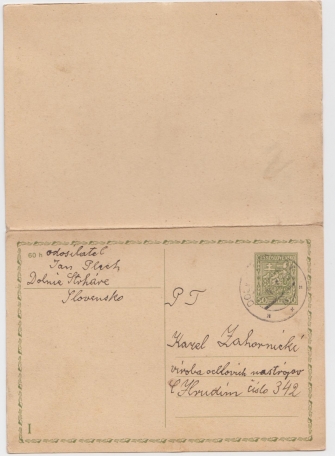 60 h odosílatel
Jan Plech
Dolnie Strháre
Slovensko
P T
Karel Zahornický
výroba ocelových nástrojov
Chrudim číslo 342
I